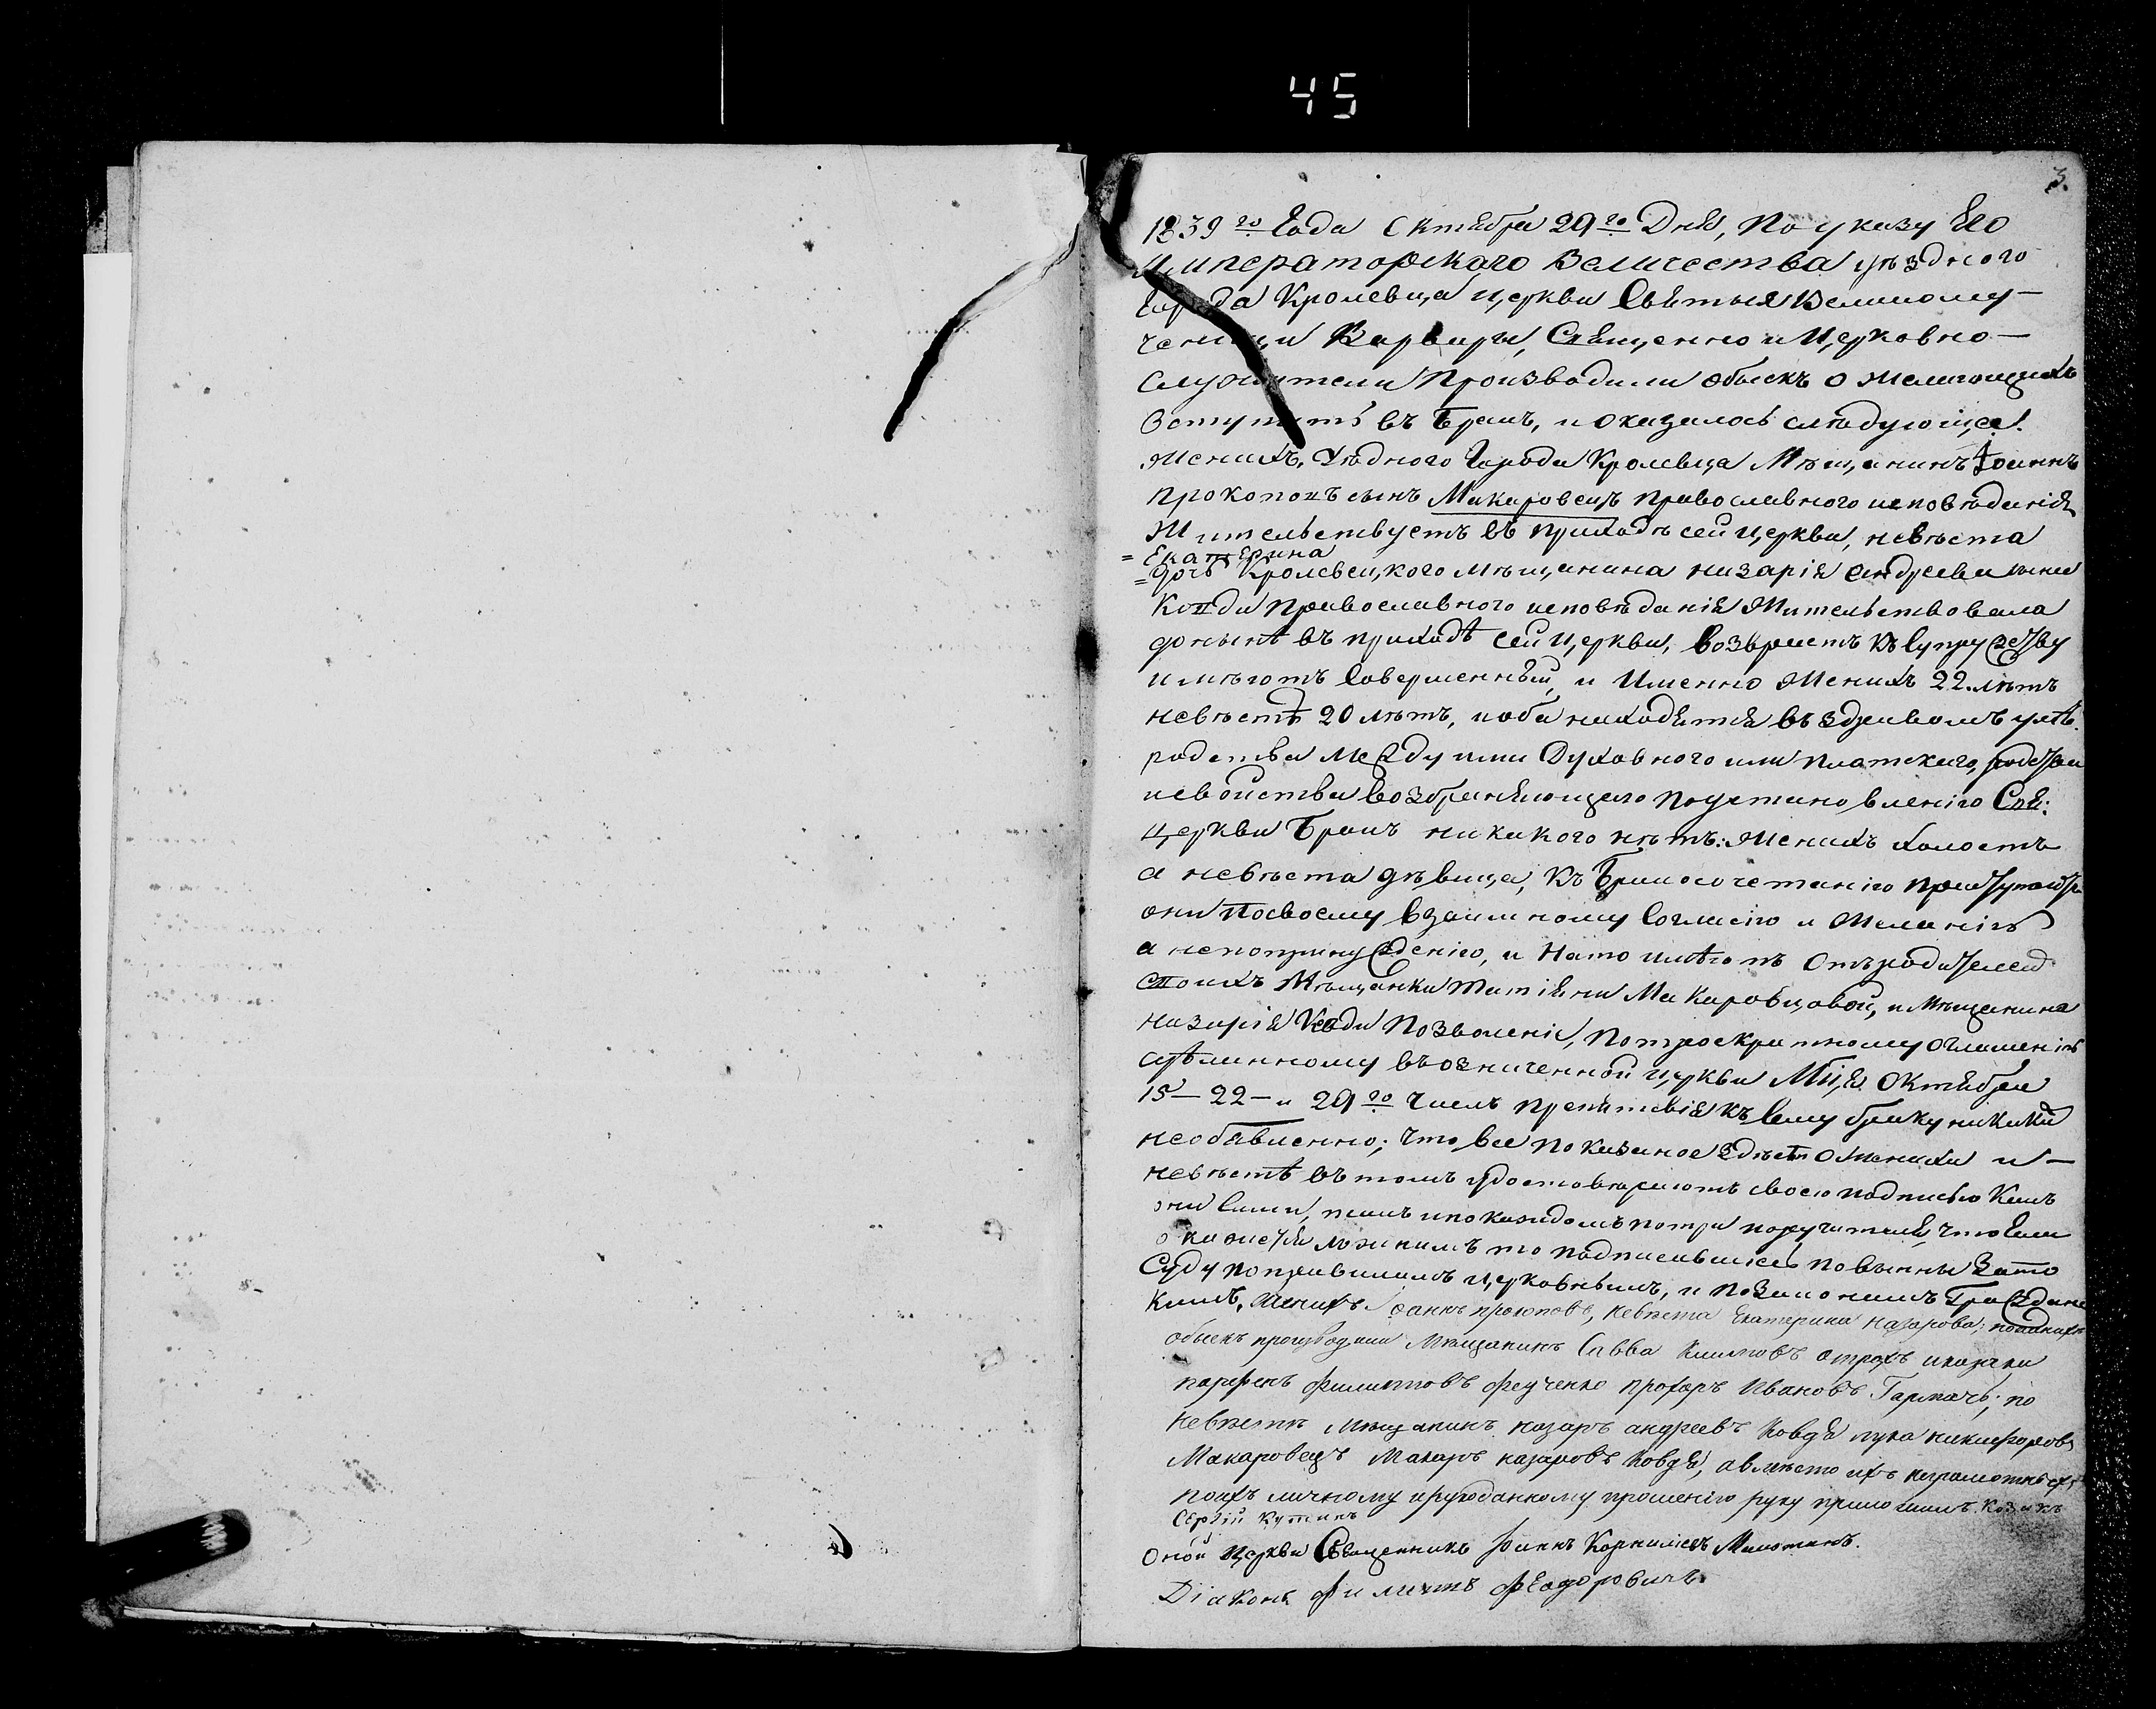 45
3.
1839го Года Октября 29го Дня, По указу Его
Императорского Величества уѣздного
Города Кролевца церкви Святыя Великому-
ченици Варвары, Священно и Церковно-
Служители Произвадили обыскъ о Желающихъ
Вступить въ Бракъ, и оказалось слѣдующее.
Женихъ, Уѣдного Города Кролевца Мѣщанинъ Іоаннъ
прокоповъ сынъ Макаровецъ православного исповѣданія
Жительствуетъ въ приходѣ сей церкви, невѣста
= Екатерина
= дочь Кролевецкого мѣщанина назарія андреева сына
Ковди Православного исповѣданія Жительствовала
донынѣ въ приходѣ сей церкви, возърастъ къ Супружеству
имѣютъ Совершенный, и Именно Женихъ 22. лѣтъ
невѣста 20 лѣтъ, иоба находятся въ здравомъ умѣ.
радства между ими Духовного или Платскаго, родства
исвойства возбраняющаго поустановленію Свя:
церкви Бракъ никакого нѣтъ: Женихъ холостъ
а невѣста дѣвица, Къ Бракосочетанію приступаютъ
они посвоему взаимному Согласію и Желанію
а непопринужденію, и Нато имѣютъ Отъ родителей
своихъ Мѣщанки Татіяни Макаровцовой, и Мѣщанина
назарія Ковди Позволеніе, Потроекратному оглашенію
здѣланному въозначенной церкви Мця Октября
15 - 22 - и 29го Числъ препятствія къ Сему браку никакий
необявленно; что все показаное здѣсь о женихи и -
невѣстѣ въ томъ удостовѣряютъ своею подписью Какъ
они Сами, такъ ипокаждомъ потри поручителя, что Если
окажется ложнимъ то подписавшіеся повынны Зато
Суду поправиламъ церковнымъ, и поЗаконамъ Граждане
кимъ, Женихъ Іоаннъ прокоповъ, невѣста Екатерина назарова; поженихѣ
обыскъ производили Мѣщанинъ Савва Климовъ отрохъ иказаки
парфенъ Филиповъ Федченко прохоръ Ивановъ Гармачъ; по
невѣстѣ мѣщанинъ назаръ андреевъ Ковдя лука никифоровъ
Макаровецъ Макаръ назаровъ Ковдя, авмѣсто ихъ неграмотныхъ
поихъ личному ирукоданному прошенію руку приложилъ Козакъ
Сергій Кутинъ
Оной Церкви Священникъ Іоаннъ Корниліевъ Милотинъ.
Діаконъ Филипъ Феодоровичъ